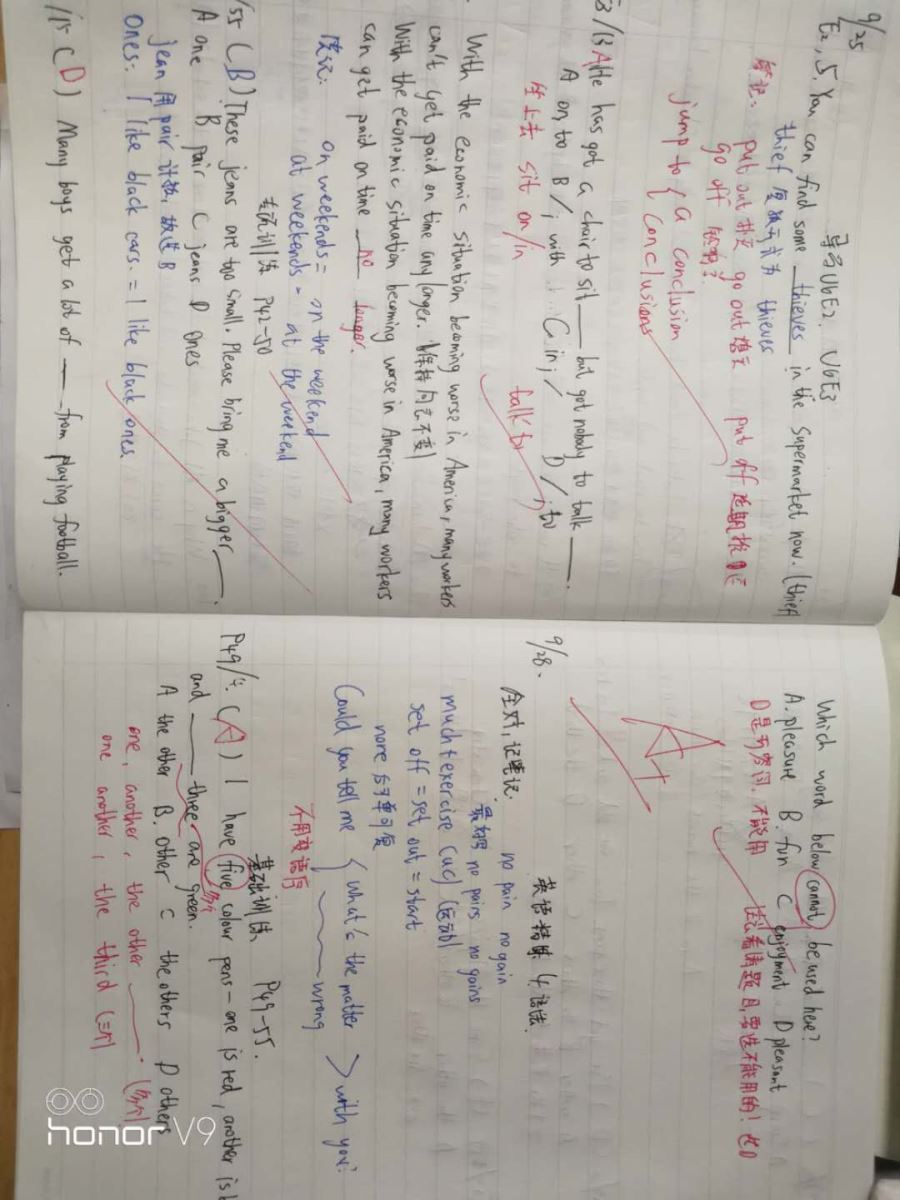 9/25
易名U6E2. U6E3
E2, 5. You can find some thieves in the Supermarket now. (thief)
thief 复数形式为 thieves
笔记: put out 扑灭 go out 熄灭 put off
go off
jump to { a conclusion
conclusions
13/ A) He has got a chair to sit ___ but got nobody to talk ___.
A on, to B /; with C in; / D /, to
坐上去 sit on/in talk to
With the economic situation becoming worse in America, many workers
can't get paid on time any longer. (保持同意不变)
With the economic situation becoming worse in America, many workers
can get paid on time no longer.
on weekends = on the weekend
at weekends = at the weekend
基础训练 P42-50
/55 (B) These jeans are too small. Please bring me a bigger ___.
A one B pair C jeans D ones
jean 用 pair 计数, 故选 B
Ones: I like black cars. = I like black ones.
/15 (D) Many boys get a lot of ___ from playing football.
Which word below cannot be used here?
A. pleasure B. fun C enjoyment D pleasant
D是形容词, 不能用
A+
9/28.
英语精练 4. 语法
全对, 记笔记. no pain no gain
no pains no gains
much+exercise (uc) (运动)
set off = set out = start
none 后可单可复
Could you tell me { what's the matter
wrong > with you?
不用变语序
基础训练 P49-55.
P49/7. (A) I have five colour pens - one is red, another is b
and ___ three are green.
A the other B. other C the others D others
one, another, the other ___. (多个)
one another, the third (三个)
honor V9